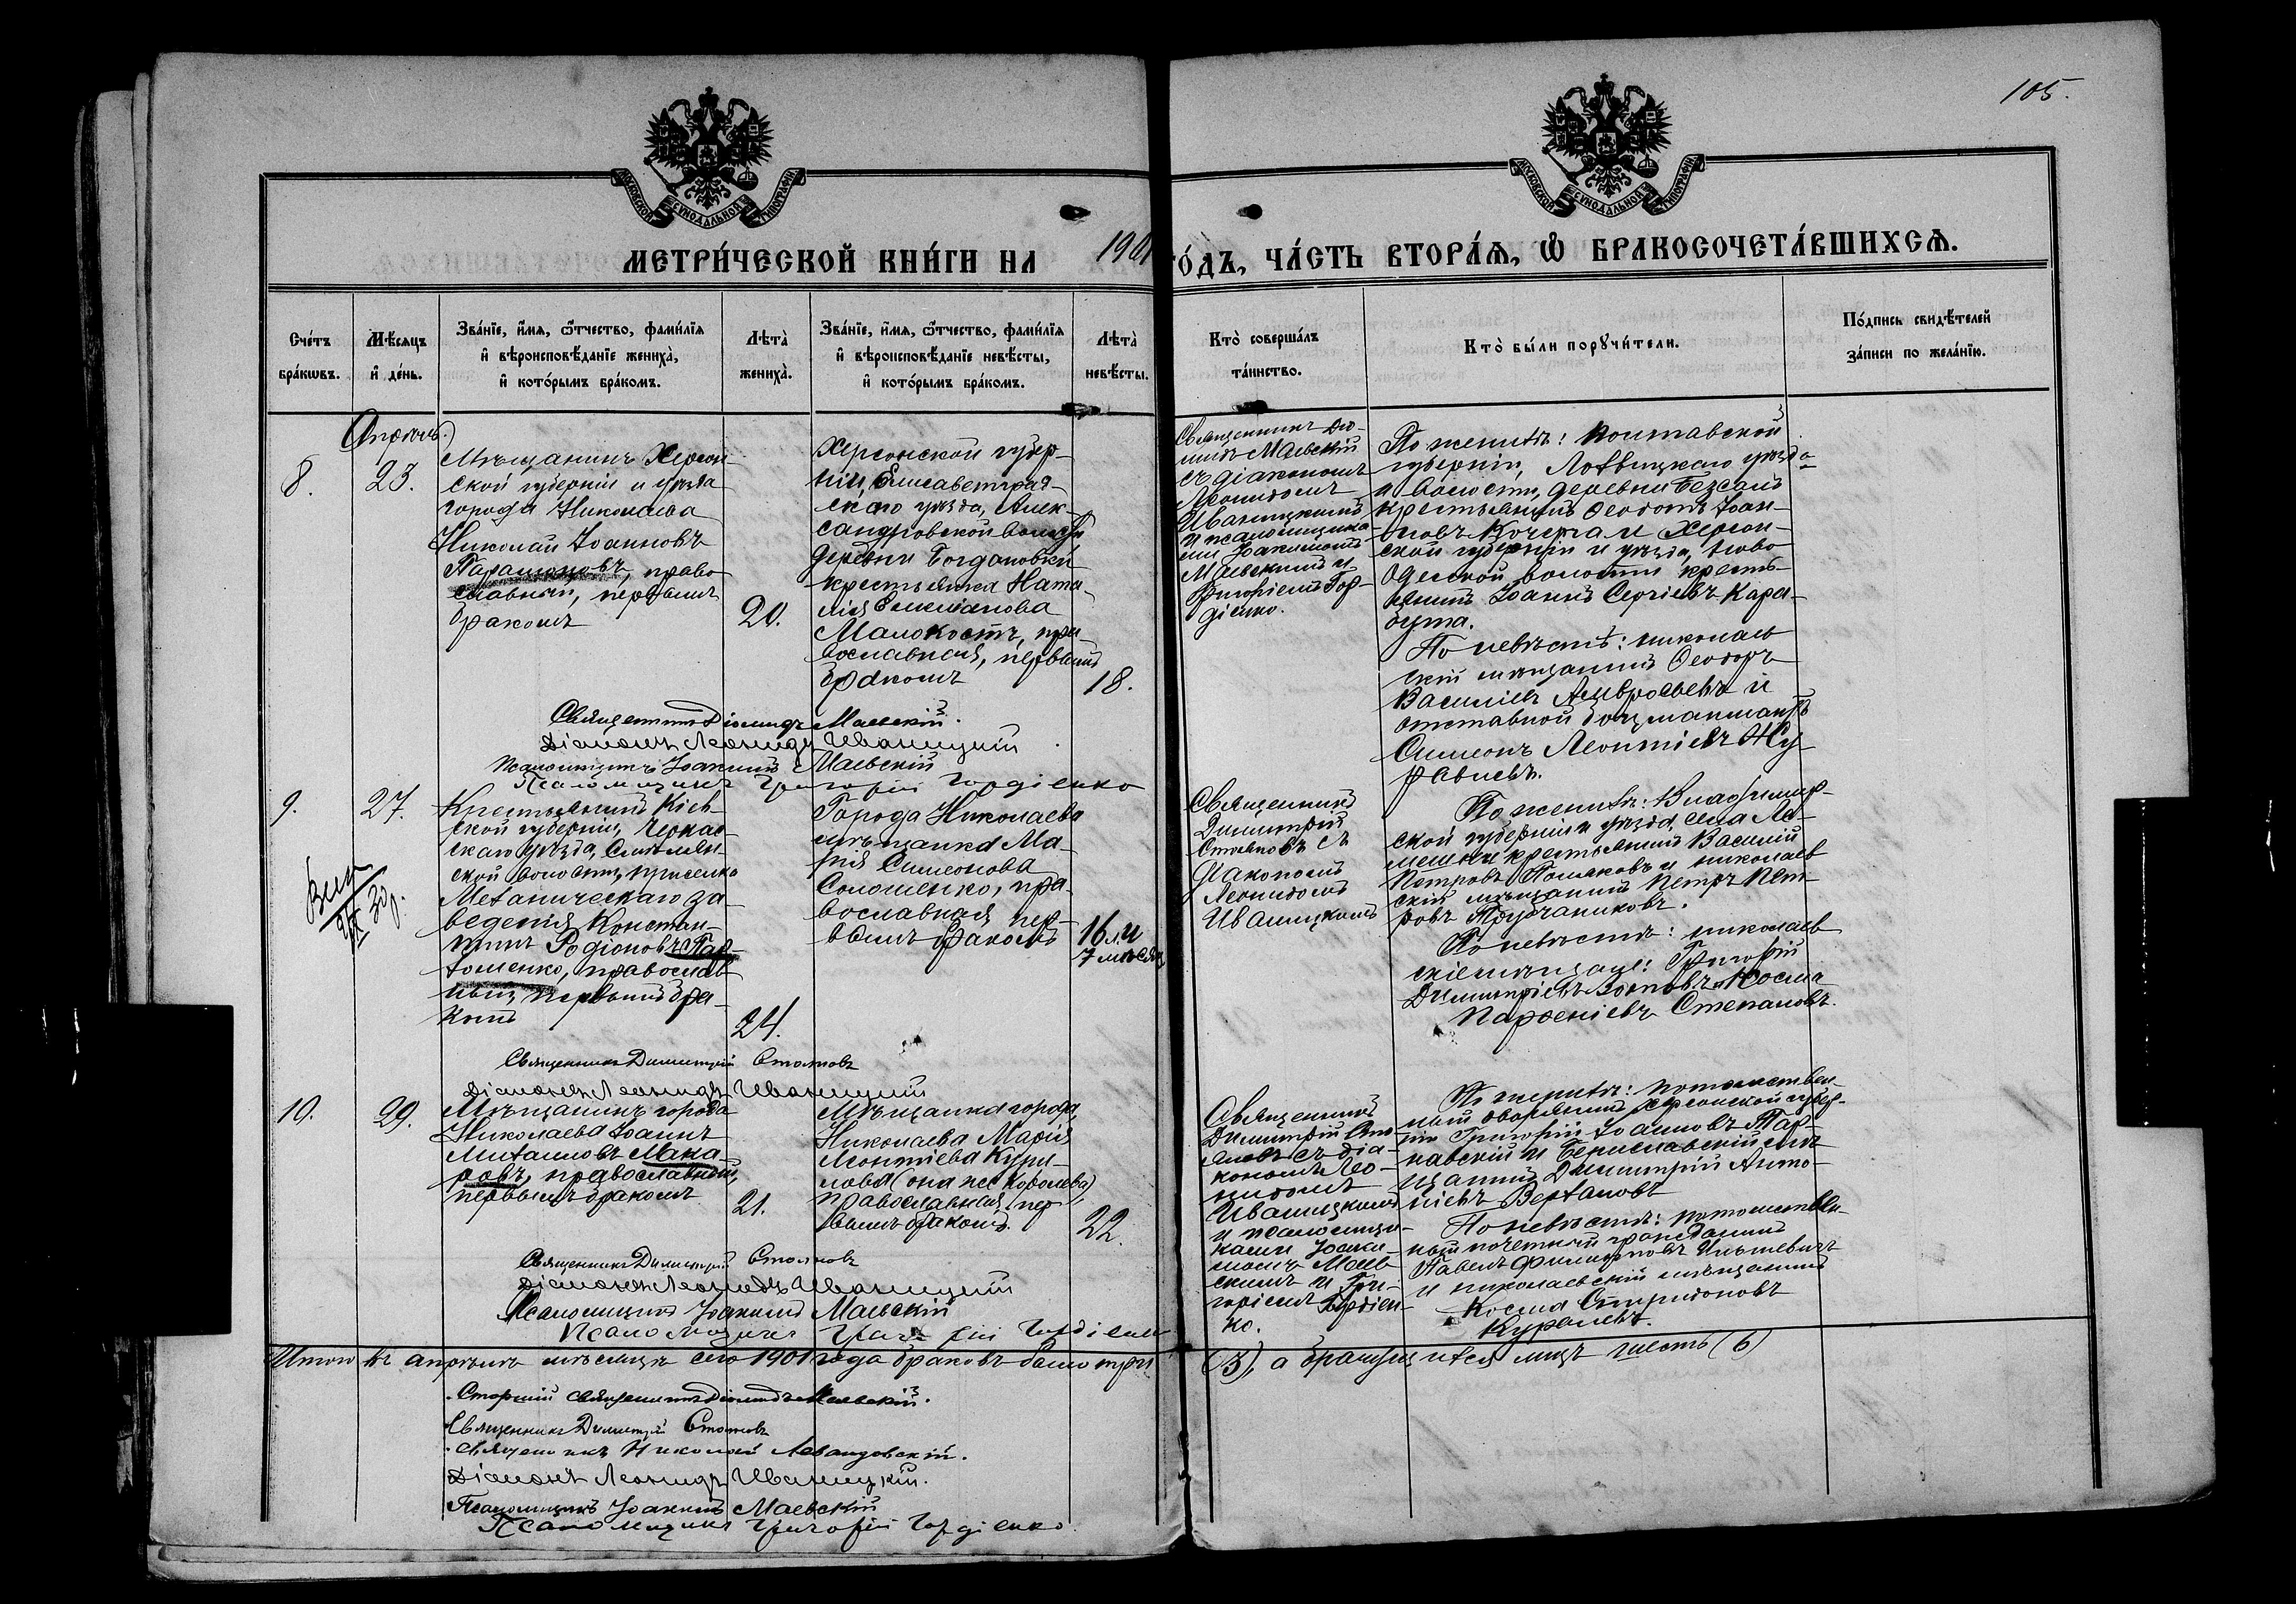 105.
МОСКОВСКОЙ СѴНОДАЛЬНОЙ ТИПОГРАФІИ
МОСКОВСКОЙ СѴНОДАЛЬНОЙ ТИПОГРАФІИ
МЕТРИ́ЧЕСКОЙ КНИ́ГИ НА 1901
ГО́ДЪ, ЧА́СТЬ ВТОРА́Ѧ, Ѽ БРАКОСОЧЕТА́ВШИХСѦ.
Сче́тъ
бра́кѡвъ.
Мѣ́сѧцъ
и҆ де́нь.
Зва́нїе, и҆́мѧ, ѻ҆́тчество, фами́лїѧ
и҆ вѣроисповѣ́данїе жениха̀,
и҆ кото́рымъ бра́комъ.
Лѣта̀
жениха̀.
Зва́нїе, и҆́мѧ, ѻ҆́тчество, фами́лїѧ
и҆ вѣроисповѣ́данїе невѣ́сты,
и҆ кото́рымъ бра́комъ.
Лѣта̀
невѣ́сты.
Кто̀ соверша́лъ
та́инство.
Кто̀ бы́ли порꙋчи́тели.
По́дпись свидѣ́телей
за́писи по жела́нїю.
Апрѣль.
8.
23.
Мѣщанинъ Херсон-
ской губерніи и уѣзда
города Николаева
Николай Іоанновъ
Парамоновъ, право-
славный, первымъ
бракомъ
20.
Херсонской губер-
ніи, Елисаветград-
скаго уѣзда, Алек-
сандровской волости
деревни Богдановки
крестьянка Ната-
лія Емеліанова
Малокостъ, пра-
вославная, первымъ
бракомъ
18.
Священникъ Діо-
мидъ Маевскій
съ діакономъ
Леонидомъ
Иваницкимъ
и псаломщика-
ми Іоакимомъ
Маевскимъ и
Григоріемъ Гор-
діенко.
По женихѣ: Полтавской
губерніи, Лохвицкаго уѣзда
и волости, деревни Безсалъ
крестьянинъ Ѳеодотъ Іоан-
новъ Кочерга и Херсон-
ской губерніи и уѣзда, Ново
Одесской волости кресть-
янинъ Іоаннъ Сергіевъ Кара-
бута.
По невѣстѣ: николаев
скій мѣщанинъ Ѳеодоръ
Василіевъ Амвросьевъ и
отставной боцманматъ
Симеонъ Леонтіевъ Жу-
равлевъ.
Священникъ Діомидъ Маевскій.
Діаконъ Леонидъ Иваницкій
Псаломщикъ Іоакимъ Маевскій
Псаломщикъ Григорій Гордіенко
9.
27.
Крестьянинъ Кіев-
ской губерніи, Черкас-
скаго уѣзда, Смѣлян-
ской волости, приселка
Механическаго за-
веденія Констан-
тинъ Родіоновъ Пар-
хоменко, православ-
ный, первымъ бра-
комъ
24.
Города Николаева
мѣщанка Ма-
рія Симеонова
Соломенко, пра-
вославная, пер-
вымъ бракомъ
16 л. и
7 мѣсяц
Священникъ
Димитрій
Стояновъ съ
діакономъ
Леонидомъ
Иваницкимъ
По женихѣ: Владимир-
ской губерніи и уѣзда, села Ле-
мешки крестьянинъ Василій
Петровъ Поляковъ и николаев
скій мѣщанинъ Петръ Пет-
ровъ Трубчаниковъ.
По невѣстѣ: николаев
скіе мѣщане: Григорій
Димитріевъ Волковъ и Косма
Парѳеніевъ Степановъ.
Священникъ Димитрій Стояновъ
Діаконъ Леонидъ Иваницкій
10.
29.
Мѣщанинъ города
Николаева Іоаннъ
Михаиловъ Мака-
ровъ, православный,
первымъ бракомъ
21.
Мѣщанка города
Николаева Марія
Леонтіева Кури-
лова (она же Королева),
православная, пер-
вымъ бракомъ.
22.
Священникъ
Димитрій Сто-
яновъ съ діа-
кономъ Лео-
нидомъ
Иваницкимъ
и псаломщи-
ками Іоаки-
момъ Маев-
скимъ и Гри-
горіемъ Гордіен-
ко.
По женихѣ: потомствен-
ный дворянинъ Херсонской губер-
ніи Григорій Іоанновъ Тар-
навскій и Бериславскій мѣ-
щанинъ Димитрій Анто-
ніевъ
По невѣстѣ: потомствен-
ный почетный гражданинъ
Павелъ
и николаевскій мѣщанинъ
Косма Спиридоновъ
Священникъ Димитрій Стояновъ
Діаконъ Леонидъ Иваницкій
Псаломщикъ Іоакимъ Маевскій
Псаломщикъ Григорій Гордіенко
Итого въ апрѣлѣ мѣсяцѣ сего 1901 года браковъ было три (3), а бракующихся лицъ шесть (6)
Старшій священникъ Діомидъ Маевскій.
Священникъ Димитрій Стояновъ
Священникъ Николай Левандовскій.
Діаконъ Леонидъ Иваницкій.
Псаломщикъ Іоакимъ Маевскій
Псаломщикъ Григорій Гордіенко.